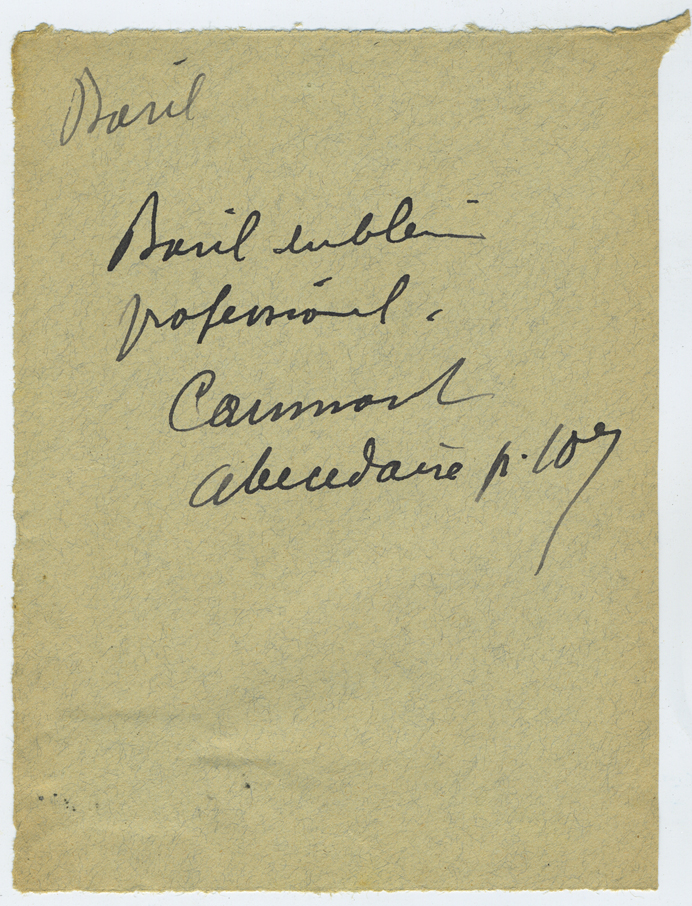 Baril
Baril emblème
professionel.
Caumont
Abecedaire p. 107